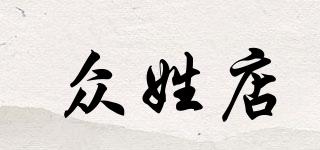 众姓店